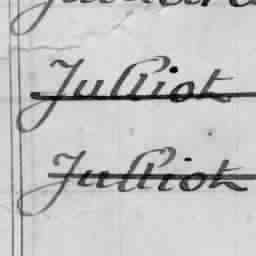 Julliot
Julliot